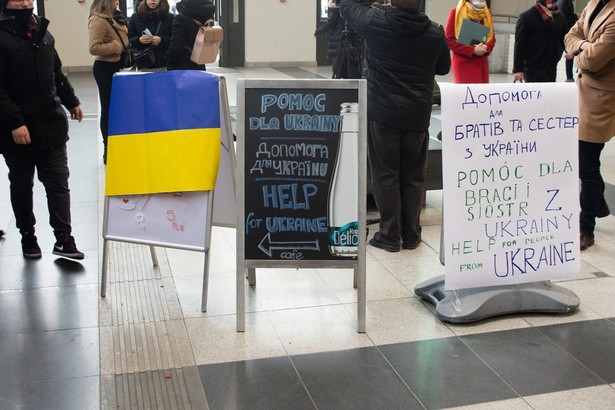 POMOC
DLA UKRAINY
ДОПОМОГА
ДЛЯ УКРАЇНИ
HELP
for UKRAINE
cafe
Délic
ДОПОМОГА
ДЛЯ
БРАТІВ ТА СЕСТЕР
З УКРАЇНИ
POMÓC DLA
BRACI I
SIÓSTR Z
UKRAINY
HELP FOR PEOPLE
FROM UKRAINE